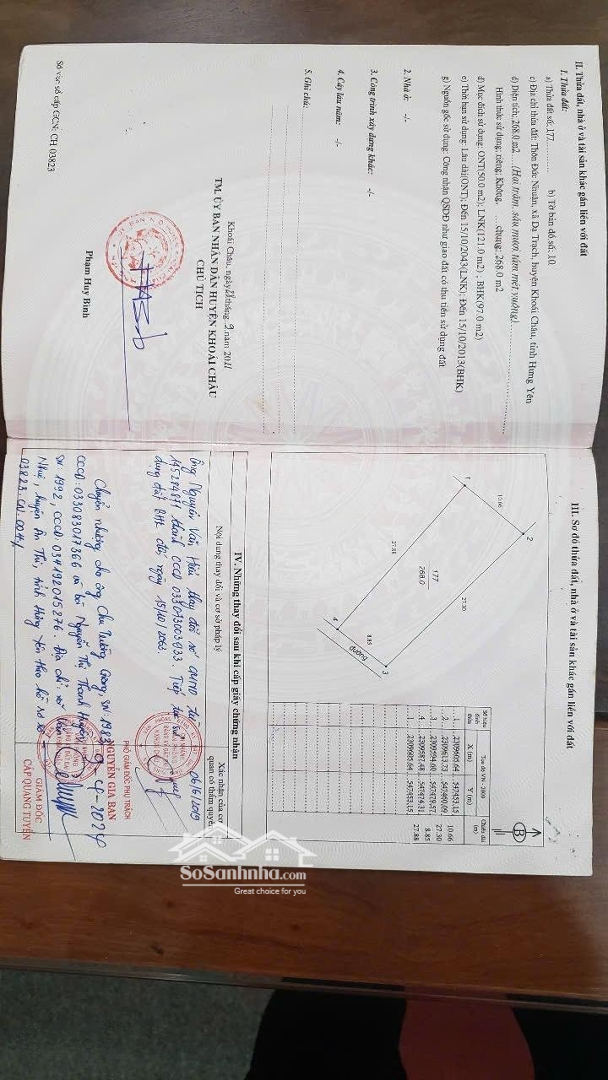 II. Thửa đất, nhà ở và tài sản khác gắn liền với đất
1. Thửa đất:
a) Thửa đất số: 177 b) Tờ bản đồ số: 10
c) Địa chỉ thửa đất: Thôn Đức Nhuận, xã Dạ Trạch, huyện Khoái Châu, tỉnh Hưng Yên
d) Diện tích: 268.0 m2 (Hai trăm sáu mươi tám mét vuông)
Hình thức sử dụng: riêng: Không, chung: 268.0 m2
đ) Mục đích sử dụng: ONT(50.0 m2); LNK(121.0 m2), BHK(97.0 m2)
e) Thời hạn sử dụng: Lâu dài(ONT); Đến 15/10/2043(LNK); Đến 15/10/2013(BHK)
g) Nguồn gốc sử dụng: Công nhận QSDĐ như giao đất có thu tiền sử dụng đất
2. Nhà ở: -/-
3. Công trình xây dựng khác: -/-
4. Cây lâu năm: -/-
5. Ghi chú:
Khoái Châu, ngày 28 tháng 2 năm 2011
TM. ỦY BAN NHÂN DÂN HUYỆN KHOÁI CHÂU
CHỦ TỊCH
Phạm Huy Bình
Số vào sổ cấp GCN: CH 03823
III. Sơ đồ thửa đất, nhà ở và tài sản khác gắn liền với đất
B
1
2
3
4
10.66
27.30
8.85
27.88
177
268.0
đường
Số hiệu đỉnh thửa
Toạ độ VN - 2000
X (m) Y (m)
Chiều dài (m)
1 2309605.64 547453.15
10.66
2 2309613.73 547460.09
27.30
3 2309594.60 547479.57
8.85
4 2309587.48 547474.31
27.88
1 2309605.64 547453.15
IV. Những thay đổi sau khi cấp giấy chứng nhận
Nội dung thay đổi và cơ sở pháp lý
Xác nhận của cơ quan có thẩm quyền
Ông Nguyễn Văn Hiếu thay đổi số CMND từ
145284871 thành CCCD 033073003933. Tiếp tục sử
dụng đất BHK đến ngày 15/10/2063.
PHÓ GIÁM ĐỐC PHỤ TRÁCH
NGUYỄN GIA BAN
Chuyển nhượng cho ông Chu Tường Giang, sn 1983
CCCD: 033083017366 và bà Nguyễn Thị Thanh Huyền
sn 1992, CCCD: 034192015276. Địa chỉ: xã
Nhuế, huyện Ân Thi, tỉnh Hưng Yên theo hồ sơ số
03823.CN.004
9-4-2024
GIÁM ĐỐC
CÁP QUANG TUYÊN
SoSanhnha.com
Great choice for you